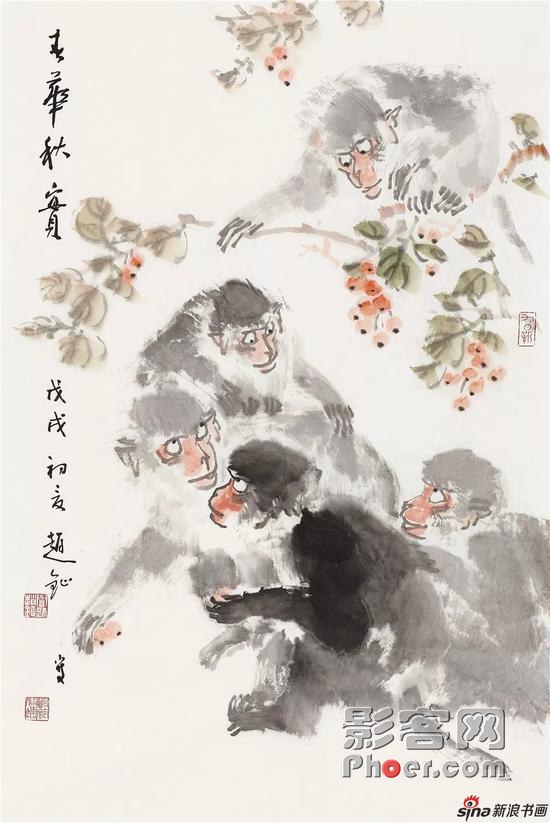 春華秋實
戊戌初夏趙釲
寫
影客网
Phoer.com
sina新浪书画